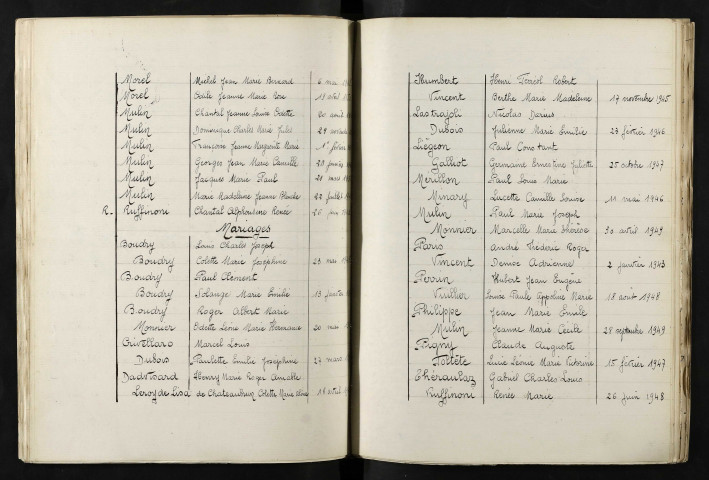 Morel Michel Jean Marie Bernard 6 mai
Morel Odile Jeanne Marie Rose 19 avril
Mulin Chantal Jeanne Louise Odette 20 avril
Mulin Dominique Charles Marie Jules 29
Mulin Françoise Jeanne Marguerite Marie 1er février
Mulin Georges Jean Marie Camille 20 janvier
Mulin Jacques Marie Paul 21 mars
Mulin Marie Madeleine Jeanne 22 juillet
R. Ruffinoni Chantal Alphonsine Renée 26 juin
Mariages
Boudry Louis Charles Joseph
Boudry Colette Marie Joséphine 23 mai
Boudry Paul Clément
Boudry Solange Marie Emilie 13 janvier
Boudry Roger Albert Marie
Monnier Odette Léonie Marie Hermance 20 mai
Crivellaro Marcel Louis
Dubois Paulette Emilie Joséphine 27 mars
Henry Marie Roger Amable
Leroy de Lisa de Chateaubrun Colette Marie 18 avril
Humbert Henri Robert
Vincent Berthe Marie Madeleine 17 novembre 1945
Lastrajoli Nicolas Darius
Dubois Julienne Marie Emilie 23 février 1946
Liégeon Paul Constant
Galliot Germaine Ernestine Juliette 25 octobre 1947
Mérillon Paul Louis Marie
Minary Lucette Camille Louise 11 mai 1946
Mulin Paul Marie Joseph
Monnier Marcelle Marie Thérèse 30 avril 1949
Paris André Frédéric Roger
Vincent Denise Adrienne 2 janvier 1943
Perrin Hubert Jean Eugène
Vuillier Louise Paule Marie 18 août 1948
Philippe Jean Marie Emile
Mulin Jeanne Marie Cécile 28 septembre 1949
Pugny Claude Auguste
Lucie Léonie Marie Victorine 15 février 1947
Théraulaz Gabriel Charles Louis
Ruffinoni Renée Marie 26 juin 1948